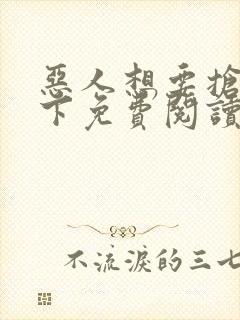 惡人想要搶
下免費閱讀
不流淚的三七